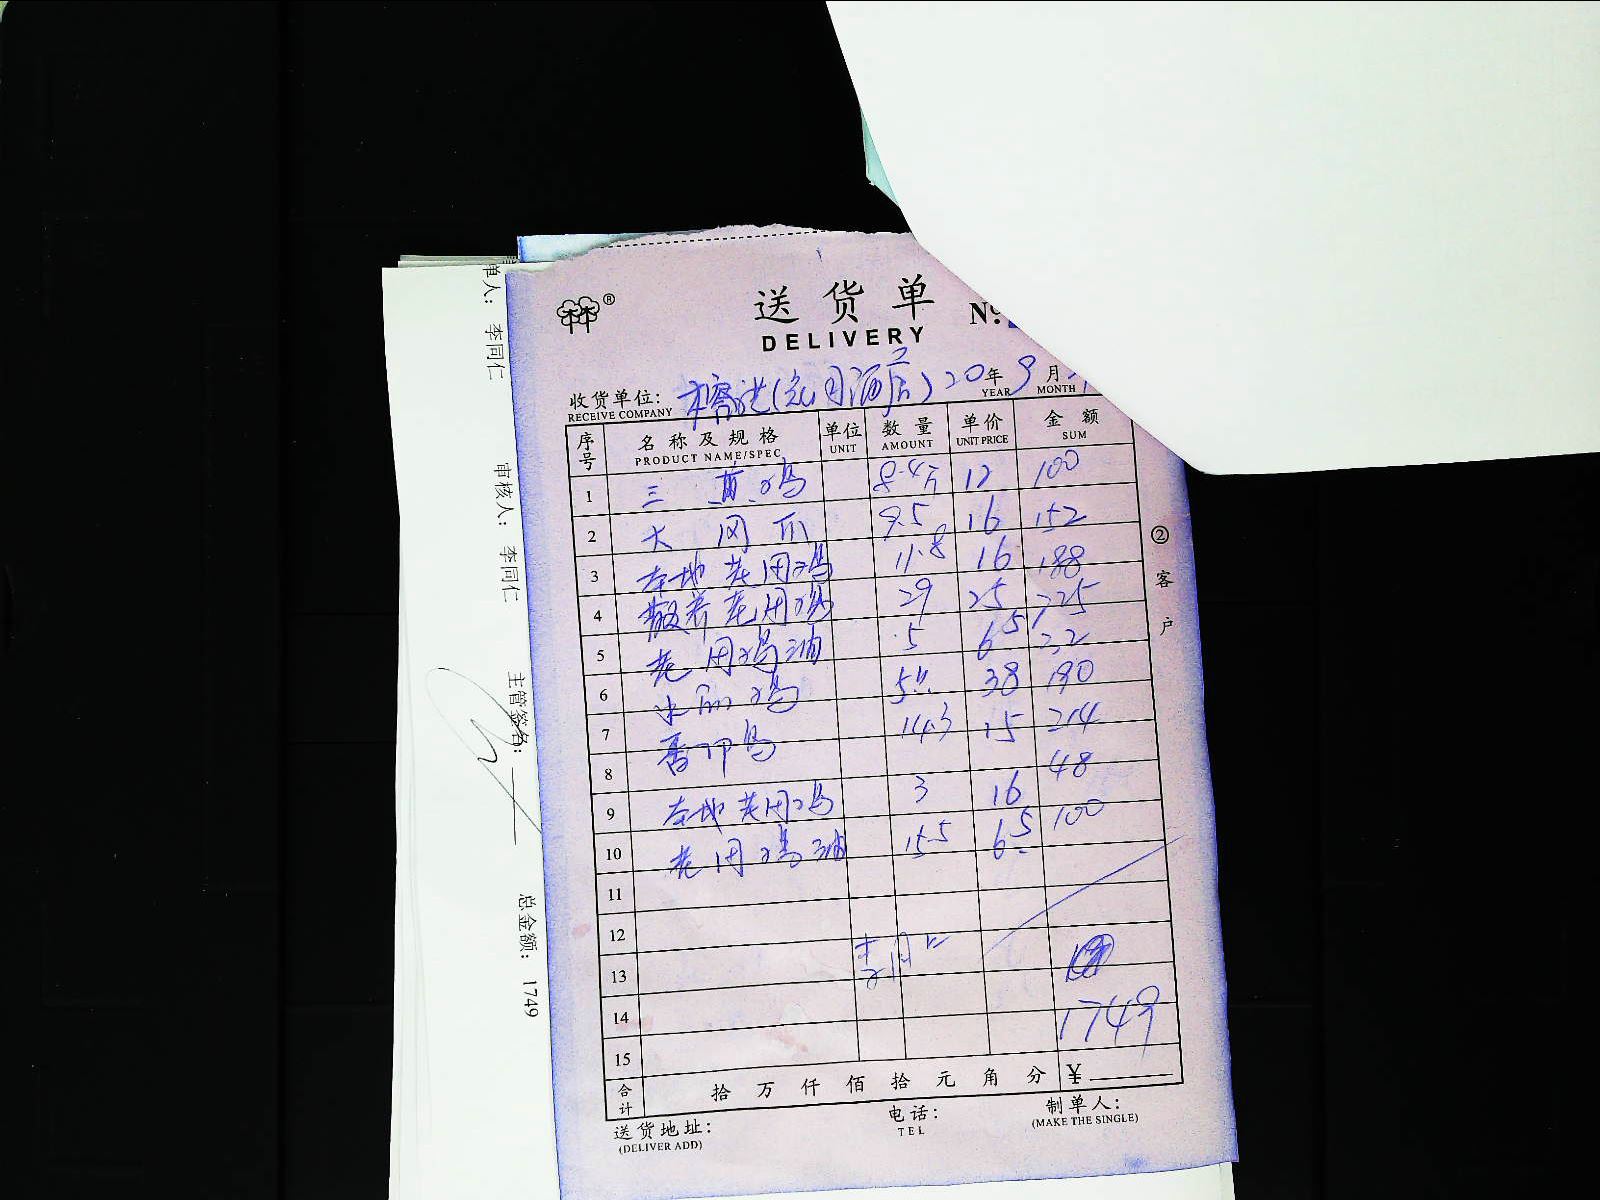 单人： 李同仁
审核人： 李同仁
主管签名：
总金额： 1749
®
送货单
DELIVERY
收货单位： (元月酒店) 20年 9月
RECEIVE COMPANY YEAR MONTH
序号 名称及规格 单位 数量 单价 金额
PRODUCT NAME/SPEC UNIT AMOUNT UNIT PRICE SUM
1 三黄鸡 8.4斤 12 100
2 大凤爪 9.5 16 152
3 本地老用鸡 11.8 16 188
4 散养老用鸡 29 25 725
5 老用鸡油 5 65 32
6 鸡 5 38 190
7 14.3 15 214
8 48
9 本地老用鸡 3 16
10 老用鸡油 15.5 6.5 100
11
12
13 李同仁
14 1749
15
合计 拾 万 仟 佰 拾 元 角 分 ¥
送货地址： 电话： 制单人：
(DELIVER ADD) TEL (MAKE THE SINGLE)
② 客户